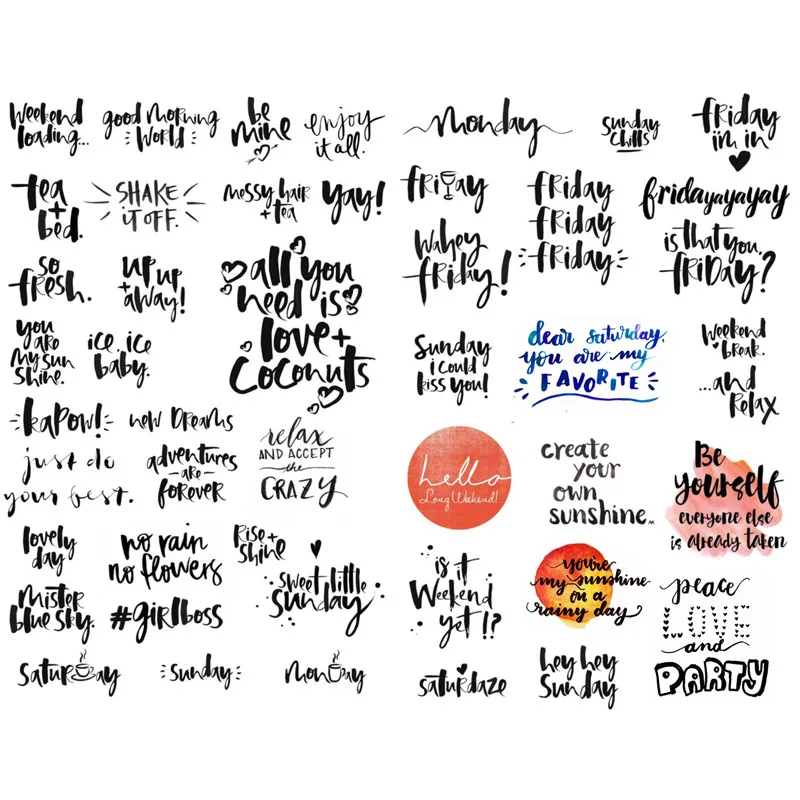 Weekend
loading...
good morning
world
be
mine
enjoy
it all.
tea
+
bed.
SHAKE
iT OFF.
messy hair
+ tea
yay!
so
fresh.
up up
+ away!
all you
need is
love +
coconuts
you
are
my sun
shine.
ice, ice
baby.
kapow!
new dreams
just do
your best.
adventures
are
forever
relax
AND ACCEPT
the
CRAZY
lovely
day
no rain
no flowers
Rise +
shine
sweet little
sunday
mister
blue sky.
#girlboss
saturday
sunday
monday
monday
sunday
chills
friday
i'm in
friday
friday
friday
friday
fridayayayayay
wahey
friday!
is that you,
friday?
Sunday
i could
kiss you!
dear saturday,
you are my
FAVORITE
Weekend
break.
...and
Relax
hello
Long Weekend!
create
your
own
sunshine.
Be
yourself
everyone else
is already taken
is it
Weekend
yet!?
you're
my sunshine
on a
rainy day
peace
LOVE
and
PARTY
saturdaze
hey hey
Sunday